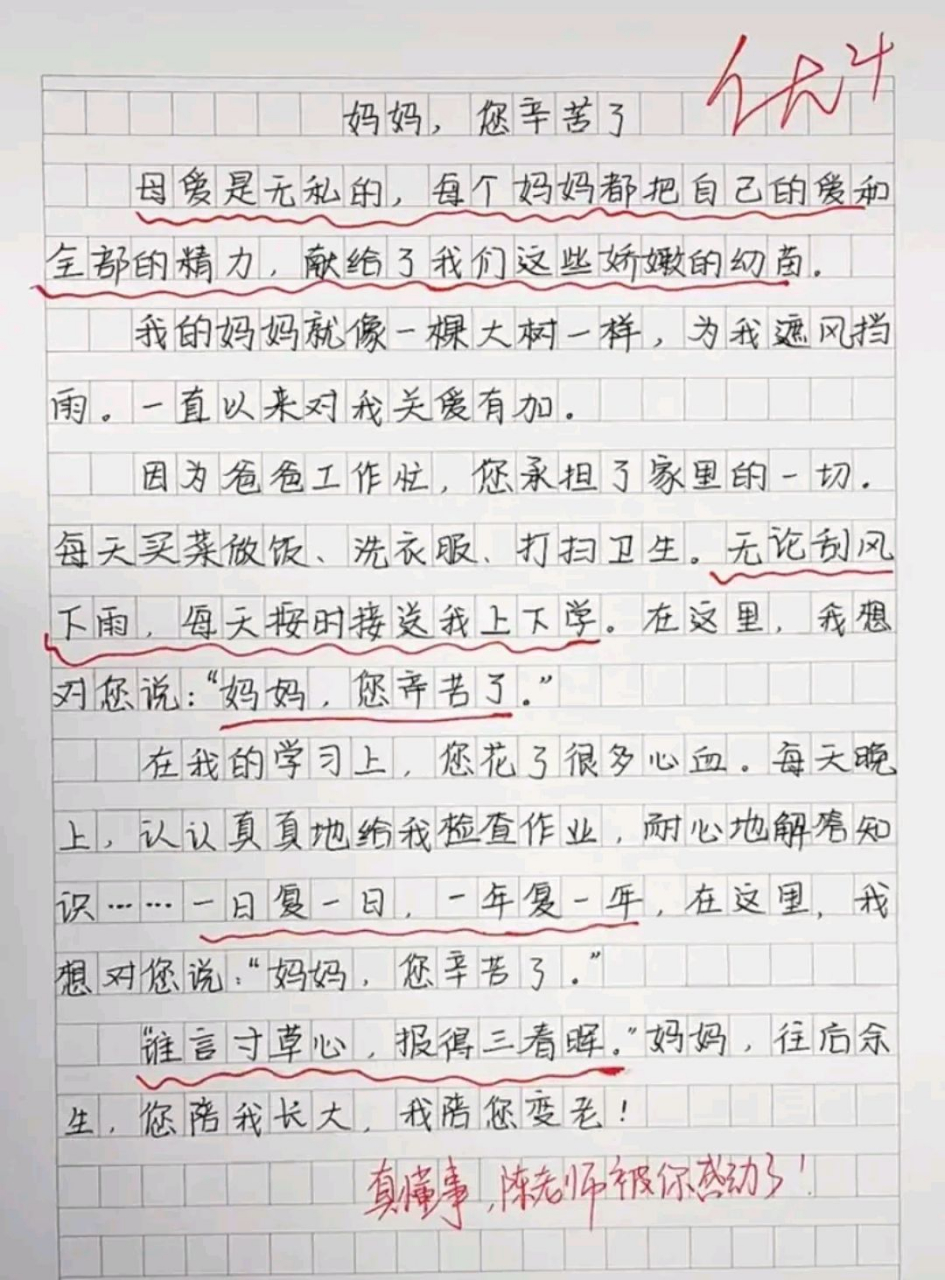 优+
妈妈，您辛苦了
母爱是无私的，每个妈妈都把自己的爱和
全部的精力，献给了我们这些娇嫩的幼苗。
我的妈妈就像一棵大树一样，为我遮风挡
雨。一直以来对我关爱有加。
因为爸爸工作忙，您承担了家里的一切。
每天买菜做饭、洗衣服、打扫卫生。无论刮风
下雨，每天按时接送我上下学。在这里，我想
对您说：“妈妈，您辛苦了。”
在我的学习上，您花了很多心血。每天晚
上，认认真真地给我检查作业，耐心地解答知
识……一日复一日，一年复一年，在这里，我
想对您说：“妈妈，您辛苦了。”
“谁言寸草心，报得三春晖。”妈妈，往后余
生，您陪我长大，我陪您变老！
真懂事，陈老师被你感动了！